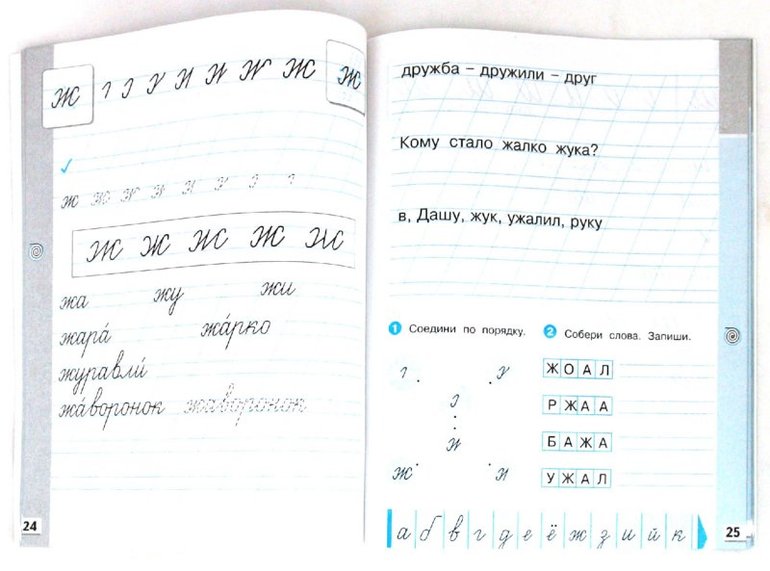 ж ж
ж
ж ж ж ж ж
жа жу жи
жара́ жа́рко
журавли́
жа́воронок жаворонок
24
дружба – дружили – друг
Кому стало жалко жука?
в, Дашу, жук, ужалил, руку
1 Соедини по порядку.
2 Собери слова. Запиши.
ЖОАЛ
РЖАА
БАЖА
УЖАЛ
ж
а б в г д е ё ж з и й к
25